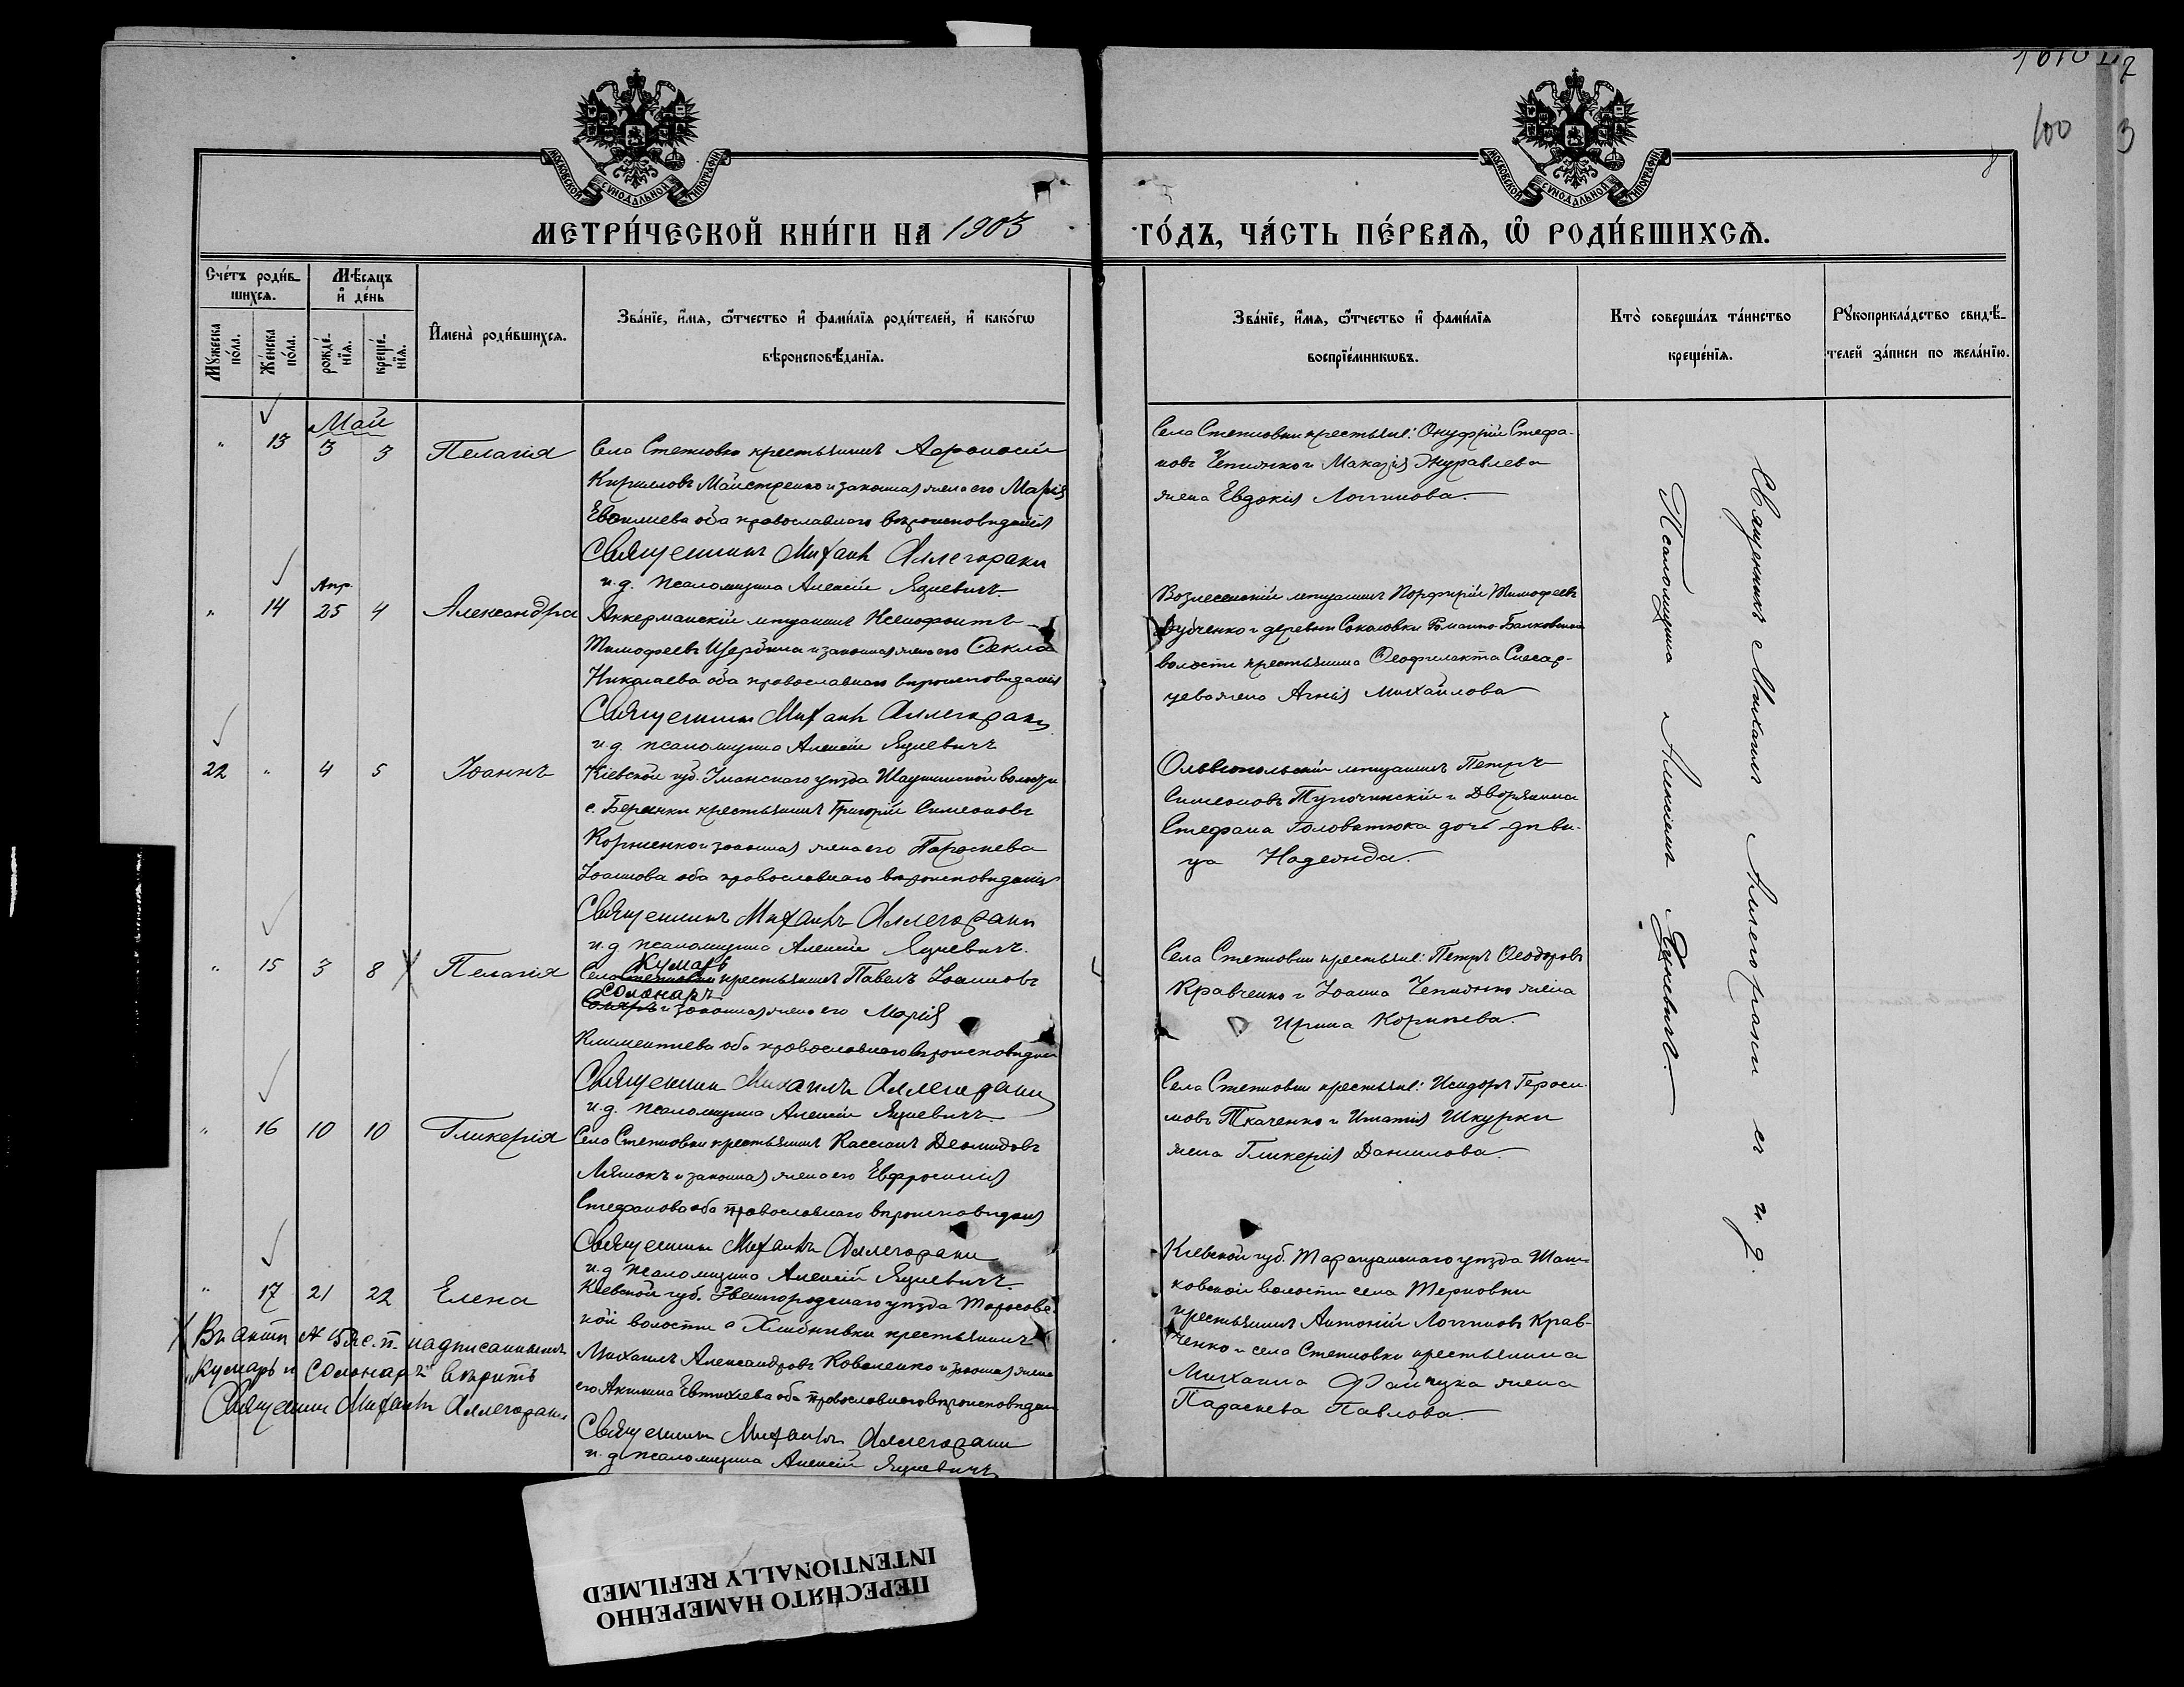 100
3
8
МОСКОВСКОЙ СУНОДАЛЬНОЙ ТИПОГРАФІИ
МОСКОВСКОЙ СУНОДАЛЬНОЙ ТИПОГРАФІИ
МЕТРИ́ЧЕСКОЙ КНИ́ГИ НА 1903
ГО́ДЪ, ЧА́СТЬ ПЕ́РВАѦ, Ѡ҆ РОДИ́ВШИХСѦ.
Сче́тъ роди́в-
шихсѧ.
Мѣ́сѧцъ
и҆ де́нь
Мꙋ́жеска по́ла.
Же́нска по́ла.
рожде́-
нїѧ.
креще́-
нїѧ.
И҆мена̀ роди́вшихсѧ.
Зва́нїе, и҆́мѧ, ѻ҆́тчество и҆ фами́лїѧ роди́телей, и҆ како́гѡ
вѣроисповѣ́данїѧ.
Зва́нїе, и҆́мѧ, ѻ҆́тчество и҆ фами́лїѧ
воспрїе́мникѡвъ.
Кто̀ соверша́лъ та́инство
креще́нїѧ.
Рꙋкоприкла́дство свидѣ́-
телей за́писи по жела́нїю.
Май
" 13 3 3 Пелагія
Села Степковки крестьянинъ Афанасій
Кирилловъ Майстренко и законная жена его Марія
Евфимиева оба православнаго вѣроисповѣданія
Священникъ Михаилъ Аллегораки
и. д. псаломщика Алексій Яцкевичъ
Села Степковки крестьяне: Онуфрій Стефа-
новъ Чепижко и Макарія Журавлева
жена Евдокія Логгинова.
Апр.
" 14 25 4 Александра
Аккерманскій мѣщанинъ Ксенофонтъ
Тимофеевъ Щербина и законная жена его Ѳекла
Николаева оба православнаго вѣроисповѣданія
Священникъ Михаилъ Аллегораки
и. д. псаломщика Алексій Яцкевичъ
Вознесенскій мѣщанинъ Порфирій Тимофеевъ
и деревни Соколовки Романо-Балковской
волости крестьянина Ѳеофилакта Слесар-
цева жена Агнія Михайлова
22 " 4 5 Іоаннъ
Кіевской губ. Уманскаго уѣзда волости
с. Березнки крестьянинъ Григорій Симеоновъ
Корниенко и законная жена его Параскева
Іоаннова оба православнаго вѣроисповѣданія
Священникъ Михаилъ Аллегораки
и. д. псаломщика Алексій Яцкевичъ.
Ольвіопольскій мѣщанинъ Петръ
Симеоновъ и Дворянина
Стефана Головатюка дочь дѣви-
ца Надежда.
" 15 3 8 Х Пелагія
Кумарь
Села Степковки крестьянинъ Павелъ Іоанновъ
Солонарь
и законная жена его Марія
Климентиева оба православнаго вѣроисповѣданія
Священникъ Михаилъ Аллегораки
и. д. псаломщика Алексій Яцкевичъ
Села Степковки крестьяне: Петръ Ѳеодоровъ
Кравченко и Іоанна Чепижко жена
Ирина Корниева.
" 16 10 10 Гликерія
Села Степковки крестьянинъ Кассіанъ Деомидовъ
Ляшокъ и законная жена его Евфросинія
Стефанова оба православнаго вѣроисповѣданія
Священникъ Михаилъ Аллегораки
и. д. псаломщика Алексій Яцкевичъ.
Села Степковки крестьяне: Исидоръ Гераси-
мовъ Ткаченко и Игнатія Шкурки
жена Гликерія Данилова.
" 17 21 22 Елена
Кіевской губ. Звенигородскаго уѣзда Тарасовс-
кой волости с. Хлибнивки крестьянинъ
Михаилъ Александровъ Коваленко и законная жена
его Акилина Евтихіева оба православнаго вѣроисповѣданія
Священникъ Михаилъ Аллегораки
и. д. псаломщика Алексій Яцкевичъ
Кіевской губ. Таращанскаго уѣзда
ковской волости села Терновки
крестьянинъ Антоній Логгиновъ Крав-
ченко и села Степковки крестьянина
Михаила жена
Параскева Павлова.
Х Въ актѣ № 15 ж. п. надписанному
"Кумарь и Солонарь" вѣрить
Священникъ Михаилъ Аллегораки
Священникъ Михаилъ Аллегораки съ и. д.
Псаломщика Алексіемъ Яцкевичъ.
ПЕРЕСНЯТО НАМЕРЕННО
INTENTIONALLY REFILMED